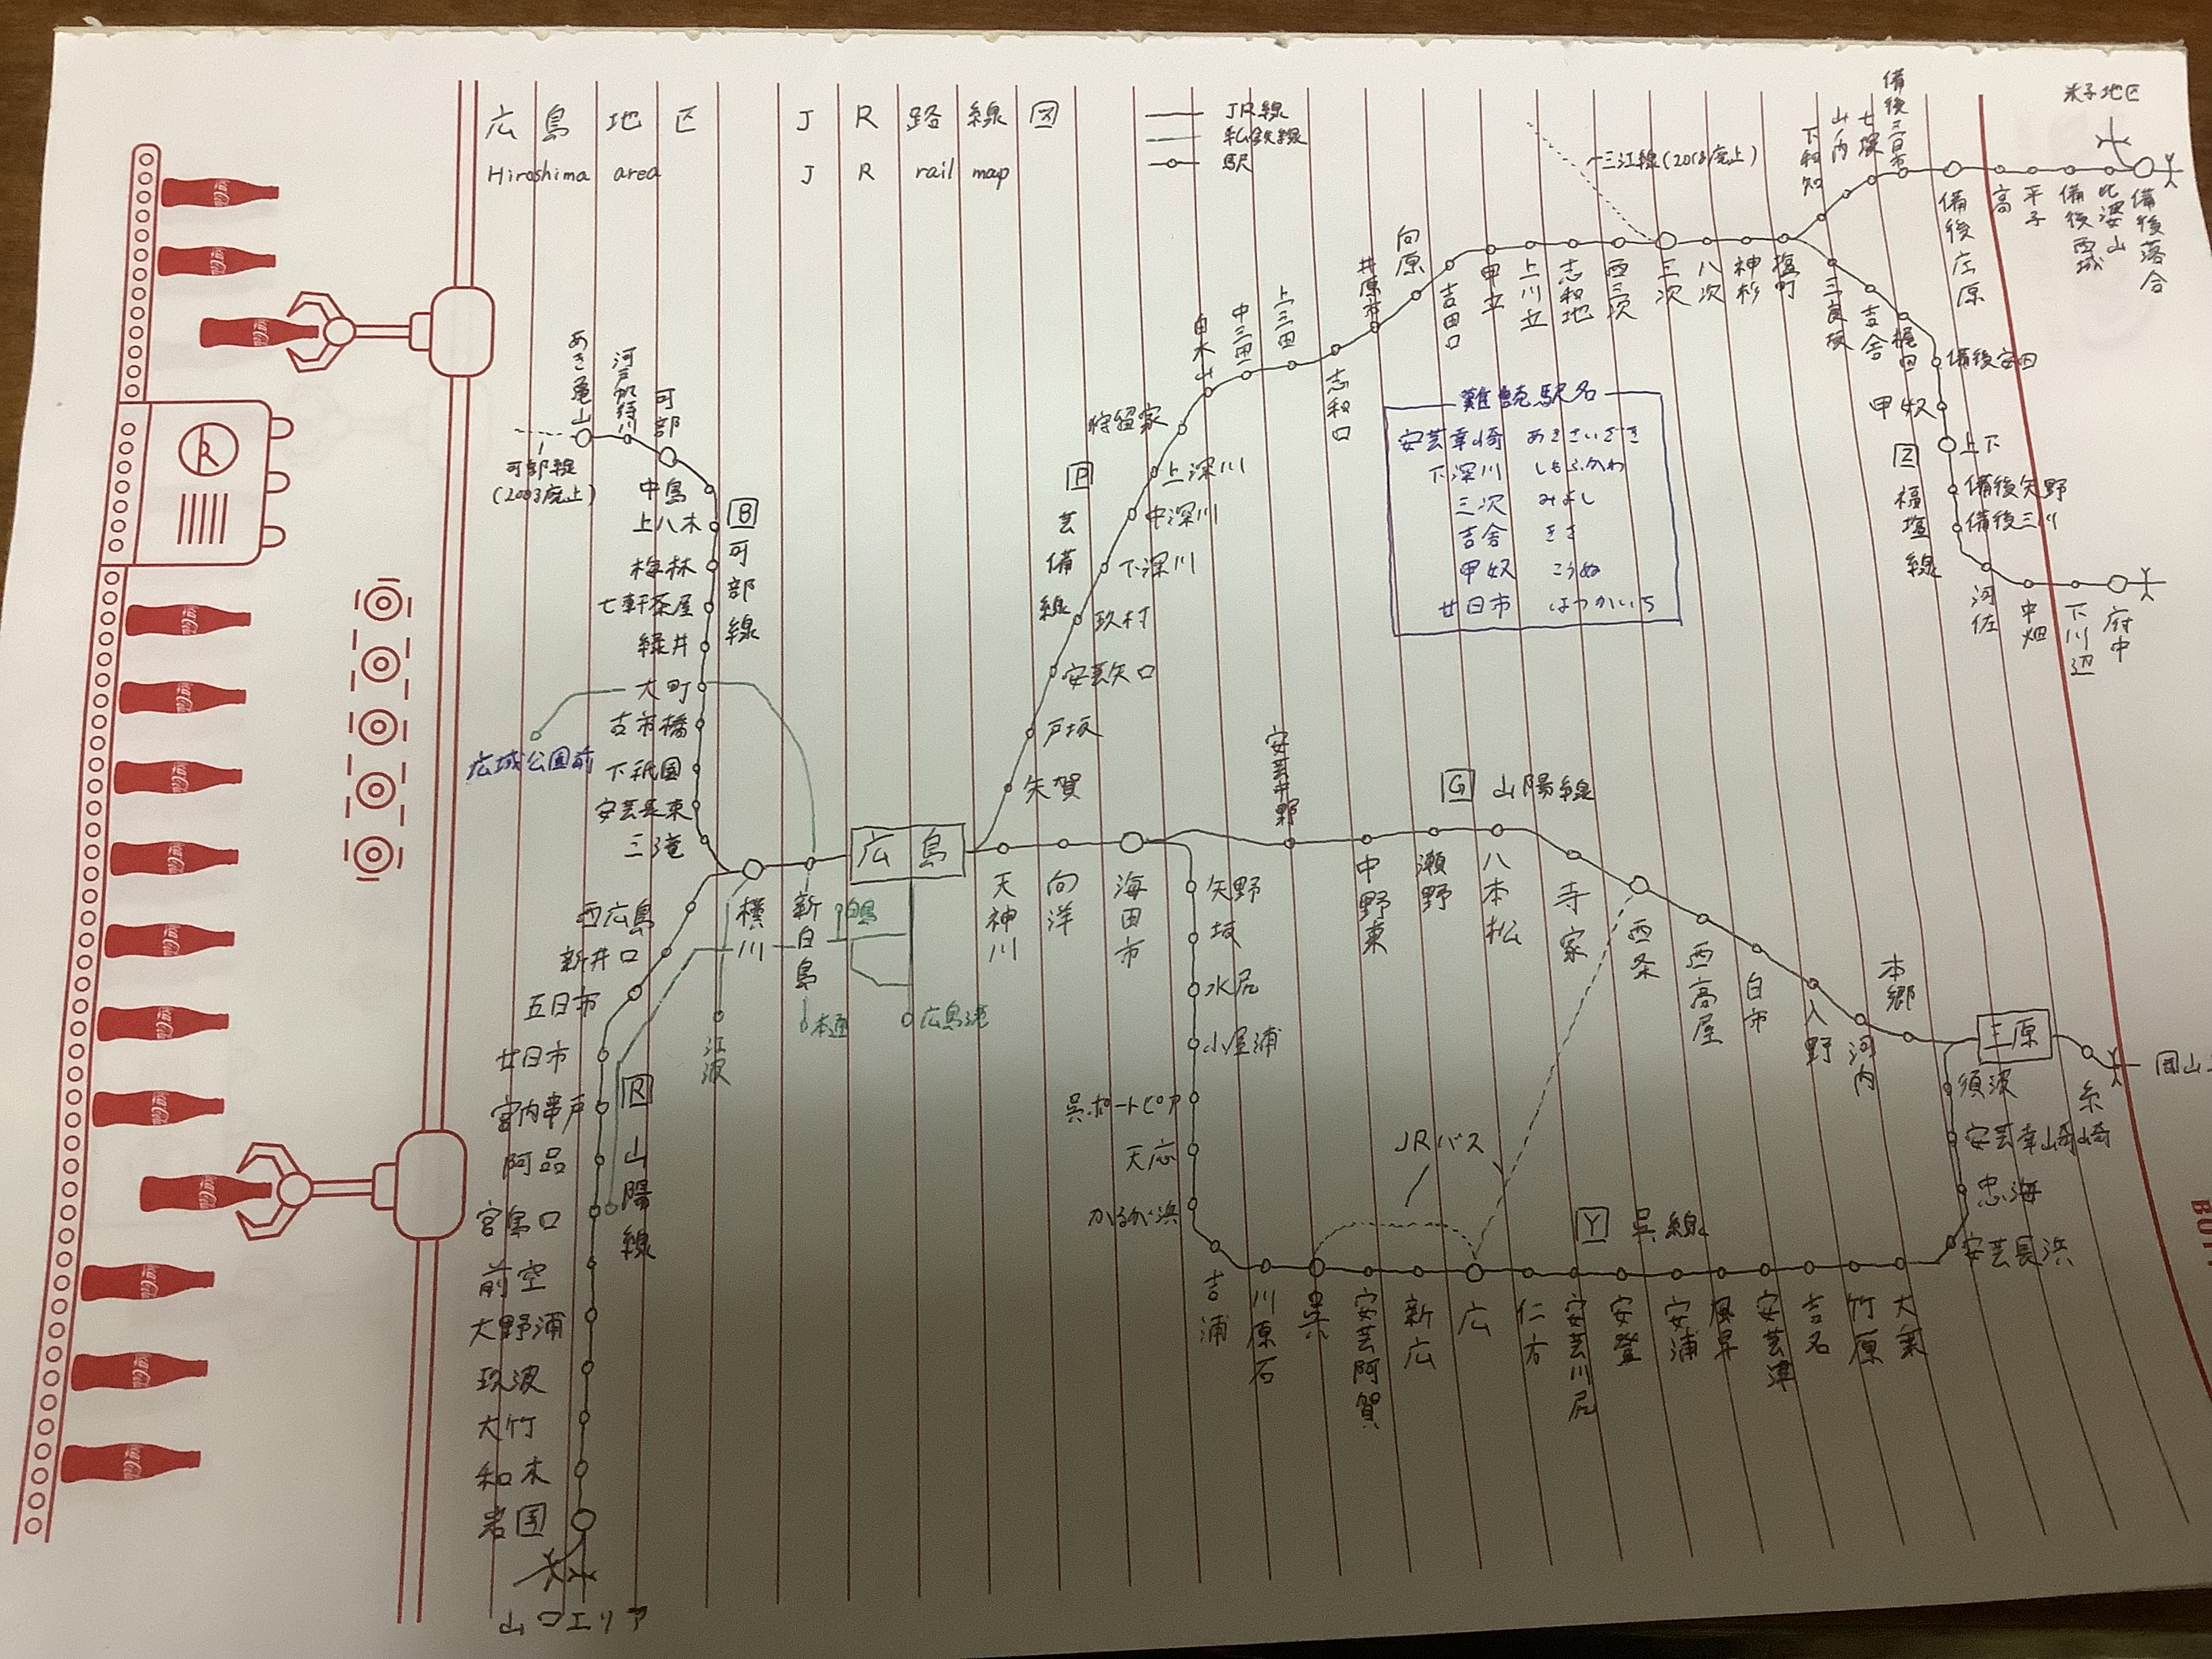 広島地区 JR路線図
Hiroshima area JR rail map
JR線
私鉄線
駅
米子地区
三江線(2018廃止)
あき亀山
河戸帆待川
可部
可部線
(2003廃止)
中島
上八木
梅林
七軒茶屋
緑井
大町
古市橋
下祇園
安芸長束
三滝
B 可部線
広域公園前
横川
新白島
白島
広島
本通
広島港
江波
西広島
新井口
五日市
廿日市
宮内串戸
阿品
宮島口
前空
大野浦
玖波
大竹
和木
岩国
山口エリア
R 山陽線
矢賀
戸坂
安芸矢口
玖村
下深川
中深川
上深川
狩留家
白木山
中三田
上三田
志和口
井原市
向原
吉田口
甲立
上川立
志和地
西三次
三次
八次
神杉
塩町
P 芸備線
下和知
山ノ内
七塚
備後三日市
備後庄原
高
平子
備後西城
比婆山
備後落合
三良坂
吉舎
梶田
備後安田
甲奴
上下
備後矢野
備後三川
河佐
中畑
下川辺
府中
Z 福塩線
難読駅名
安芸幸崎 あきさいざき
下深川 しもふかわ
三次 みよし
吉舎 きさ
甲奴 こうぬ
廿日市 はつかいち
天神川
向洋
海田市
安芸中野
中野東
瀬野
八本松
寺家
西条
西高屋
白市
入野
河内
本郷
三原
糸崎
岡山
G 山陽線
矢野
坂
水尻
小屋浦
呉ポートピア
天応
かるが浜
吉浦
川原石
呉
安芸阿賀
新広
広
仁方
安芸川尻
安登
安浦
風早
安芸津
吉名
竹原
大乗
安芸長浜
忠海
安芸幸崎
須波
Y 呉線
JRバス